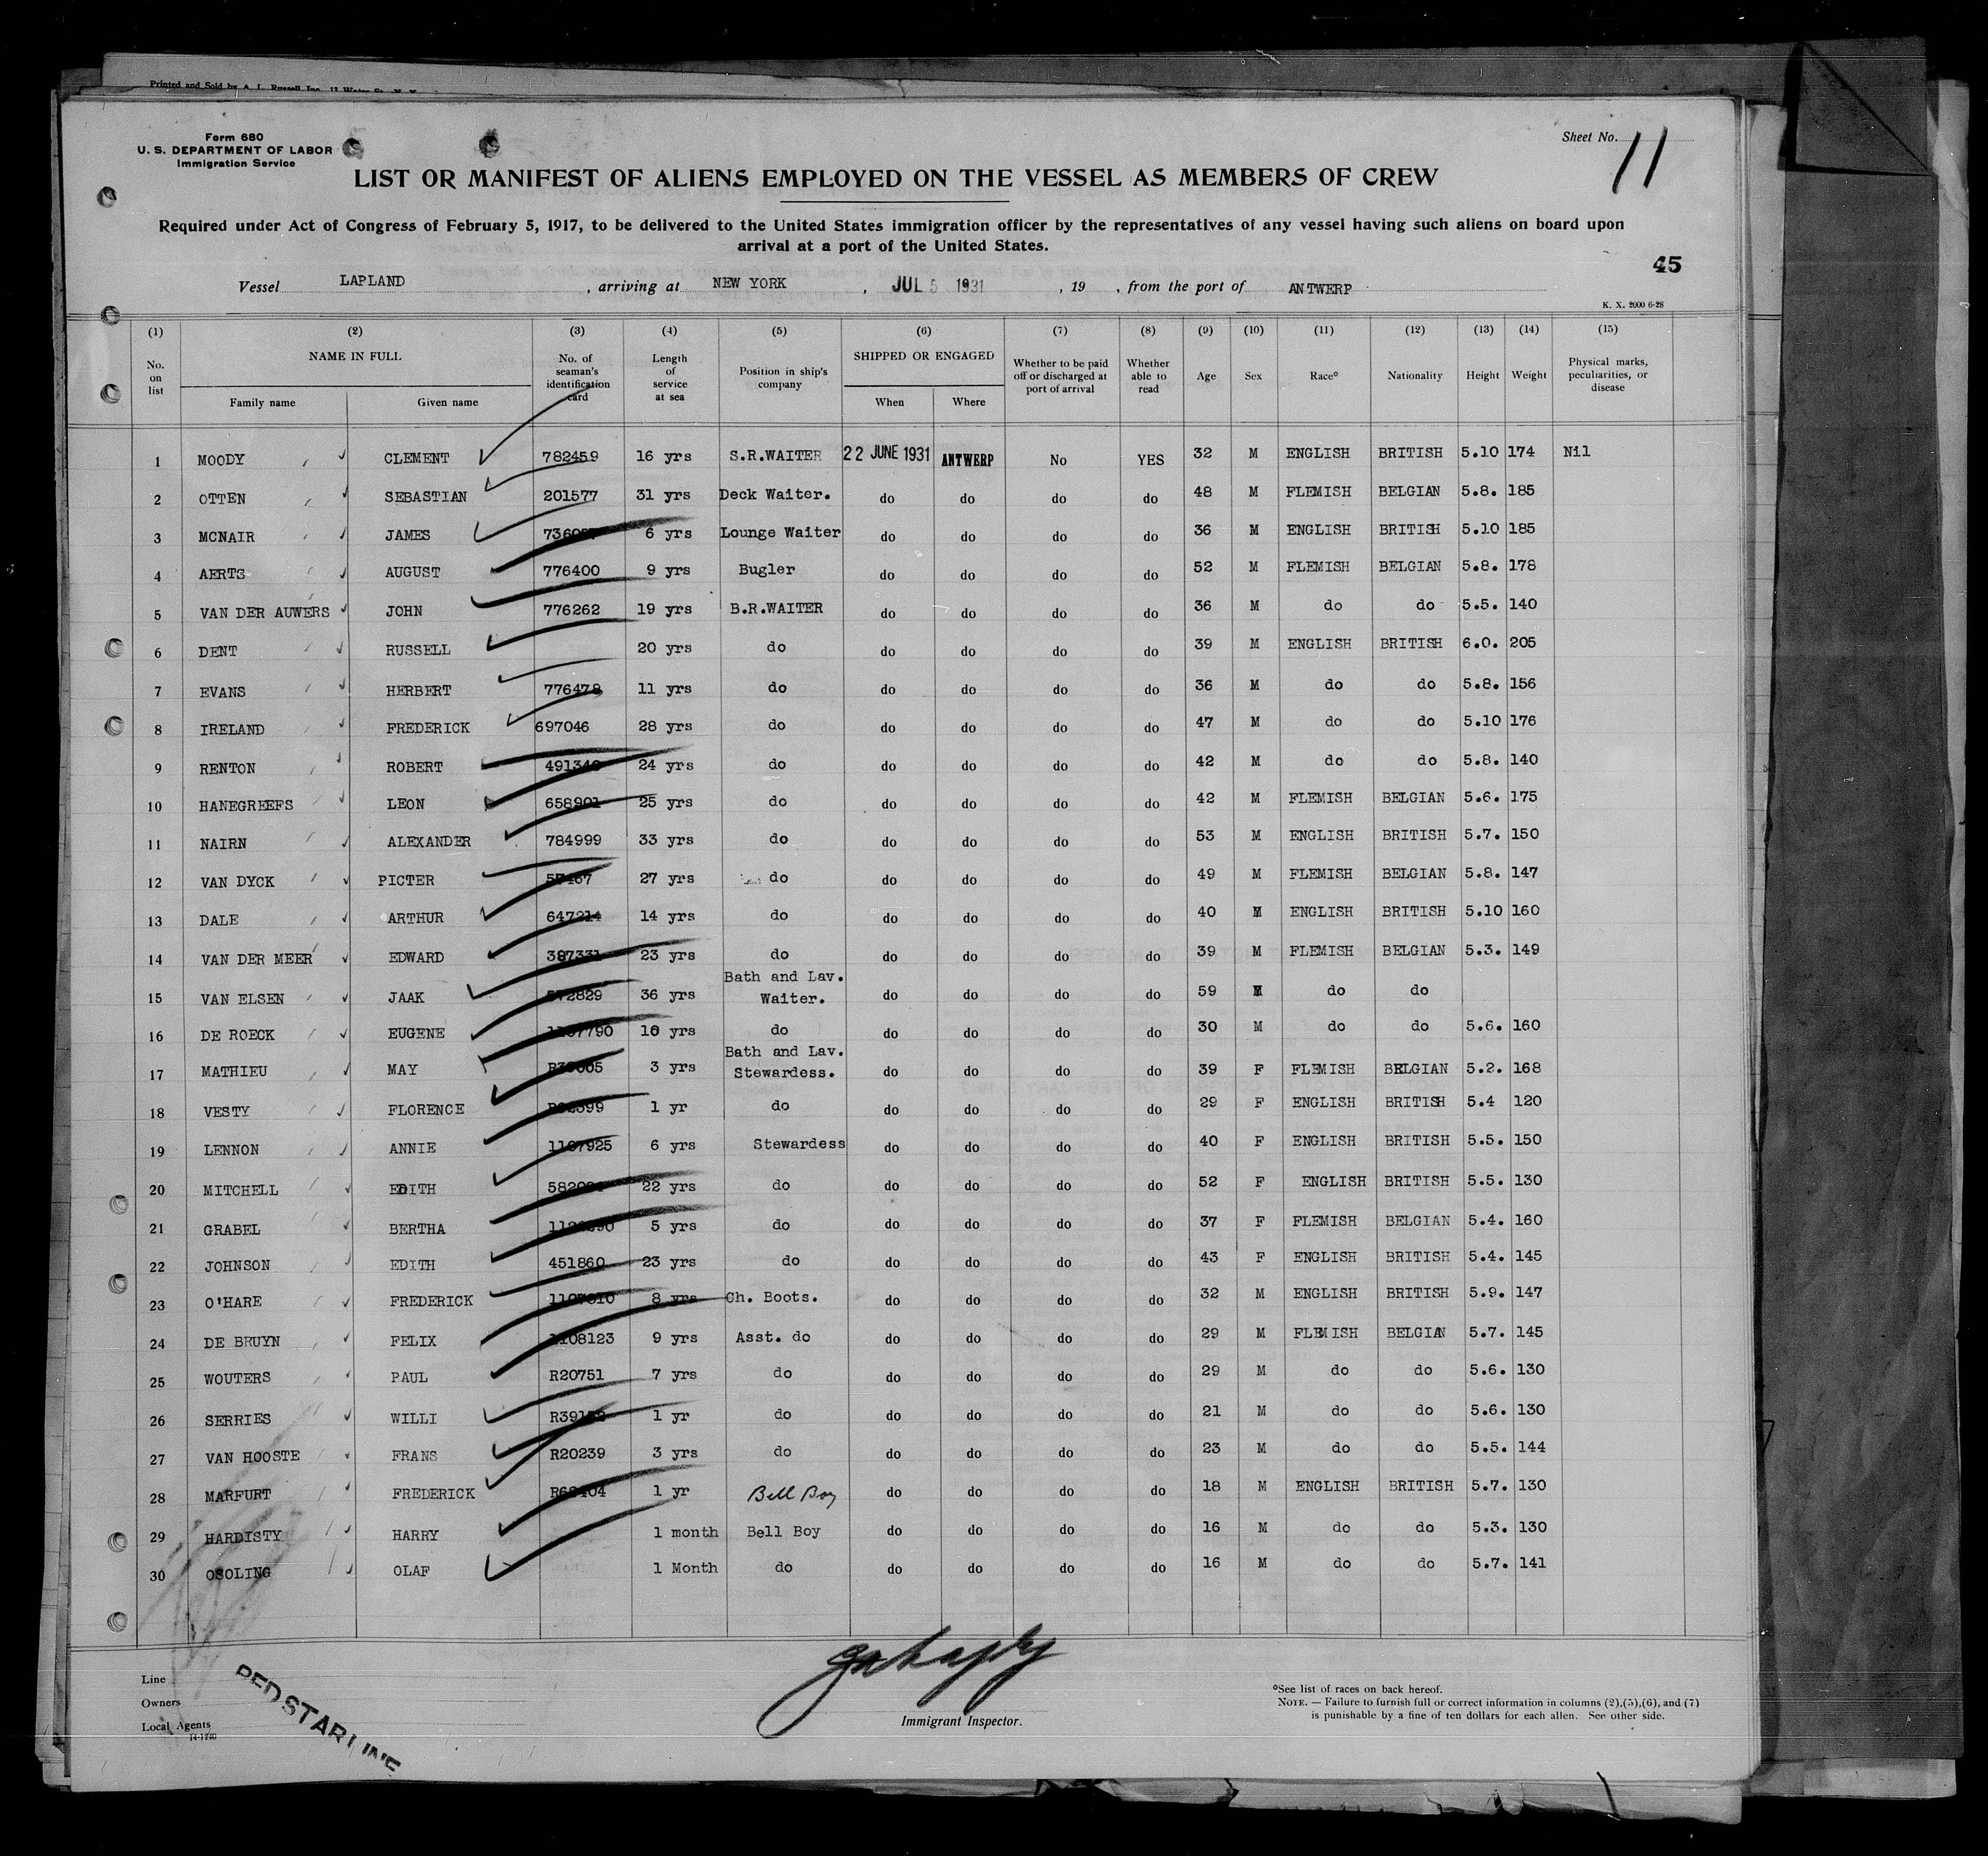 Printed and Sold by A. L. Russell Inc.
Form 680
U. S. DEPARTMENT OF LABOR
Immigration Service
Sheet No. 11
LIST OR MANIFEST OF ALIENS EMPLOYED ON THE VESSEL AS MEMBERS OF CREW
Required under Act of Congress of February 5, 1917, to be delivered to the United States immigration officer by the representatives of any vessel having such aliens on board upon
arrival at a port of the United States.
45
Vessel LAPLAND , arriving at NEW YORK , JUL 5 1931 , 19 , from the port of ANTWERP
K. X. 2000 6-28
(1) (2) (3) (4) (5) (6) (7) (8) (9) (10) (11) (12) (13) (14) (15)
No. on list NAME IN FULL Family name Given name No. of seaman's identification card Length of service at sea Position in ship's company SHIPPED OR ENGAGED When Where Whether to be paid off or discharged at port of arrival Whether able to read Age Sex Race° Nationality Height Weight Physical marks, peculiarities, or disease
1 MOODY CLEMENT 782459 16 yrs S.R.WAITER 22 JUNE 1931 ANTWERP No YES 32 M ENGLISH BRITISH 5.10 174 Nil
2 OTTEN SEBASTIAN 201577 31 yrs Deck Waiter. do do do do 48 M FLEMISH BELGIAN 5.8. 185
3 MCNAIR JAMES 6 yrs Lounge Waiter do do do do 36 M ENGLISH BRITISH 5.10 185
4 AERTS AUGUST 776400 9 yrs Bugler do do do do 52 M FLEMISH BELGIAN 5.8. 178
5 VAN DER AUWERS JOHN 776262 19 yrs B.R.WAITER do do do do 36 M do do 5.5. 140
6 DENT RUSSELL 20 yrs do do do do do 39 M ENGLISH BRITISH 6.0. 205
7 EVANS HERBERT 776478 11 yrs do do do do do 36 M do do 5.8. 156
8 IRELAND FREDERICK 697046 28 yrs do do do do do 47 M do do 5.10 176
9 RENTON ROBERT 24 yrs do do do do do 42 M do do 5.8. 140
10 HANEGREEFS LEON 658901 25 yrs do do do do do 42 M FLEMISH BELGIAN 5.6. 175
11 NAIRN ALEXANDER 784999 33 yrs do do do do do 53 M ENGLISH BRITISH 5.7. 150
12 VAN DYCK PICTER 27 yrs do do do do do 49 M FLEMISH BELGIAN 5.8. 147
13 DALE ARTHUR 647214 14 yrs do do do do do 40 M ENGLISH BRITISH 5.10 160
14 VAN DER MEER EDWARD 387331 23 yrs do do do do do 39 M FLEMISH BELGIAN 5.3. 149
15 VAN ELSEN JAAK 36 yrs Bath and Lav. Waiter. do do do do 59 M do do
16 DE ROECK EUGENE 10 yrs do do do do do 30 M do do 5.6. 160
17 MATHIEU MAY 3 yrs Bath and Lav. Stewardess. do do do do 39 F FLEMISH BELGIAN 5.2. 168
18 VESTY FLORENCE 1 yr do do do do do 29 F ENGLISH BRITISH 5.4 120
19 LENNON ANNIE 1107925 6 yrs Stewardess do do do do 40 F ENGLISH BRITISH 5.5. 150
20 MITCHELL EDITH 22 yrs do do do do do 52 F ENGLISH BRITISH 5.5. 130
21 GRABEL BERTHA 5 yrs do do do do do 37 F FLEMISH BELGIAN 5.4. 160
22 JOHNSON EDITH 451860 23 yrs do do do do do 43 F ENGLISH BRITISH 5.4. 145
23 O'HARE FREDERICK 8 yrs Ch. Boots. do do do do 32 M ENGLISH BRITISH 5.9. 147
24 DE BRUYN FELIX 1108123 9 yrs Asst. do do do do do 29 M FLEMISH BELGIAN 5.7. 145
25 WOUTERS PAUL R20751 7 yrs do do do do do 29 M do do 5.6. 130
26 SERRIES WILLI 1 yr do do do do do 21 M do do 5.6. 130
27 VAN HOOSTE FRANS R20239 3 yrs do do do do do 23 M do do 5.5. 144
28 MARFURT FREDERICK 1 yr Bell Boy do do do do 18 M ENGLISH BRITISH 5.7. 130
29 HARDISTY HARRY 1 month Bell Boy do do do do 16 M do do 5.3. 130
30 OSOLING OLAF 1 Month do do do do do 16 M do do 5.7. 141
Line
Owners
Local Agents
14-1240
RED STAR LINE
Immigrant Inspector.
°See list of races on back hereof.
NOTE. — Failure to furnish full or correct information in columns (2),(5),(6), and (7)
is punishable by a fine of ten dollars for each alien. See other side.